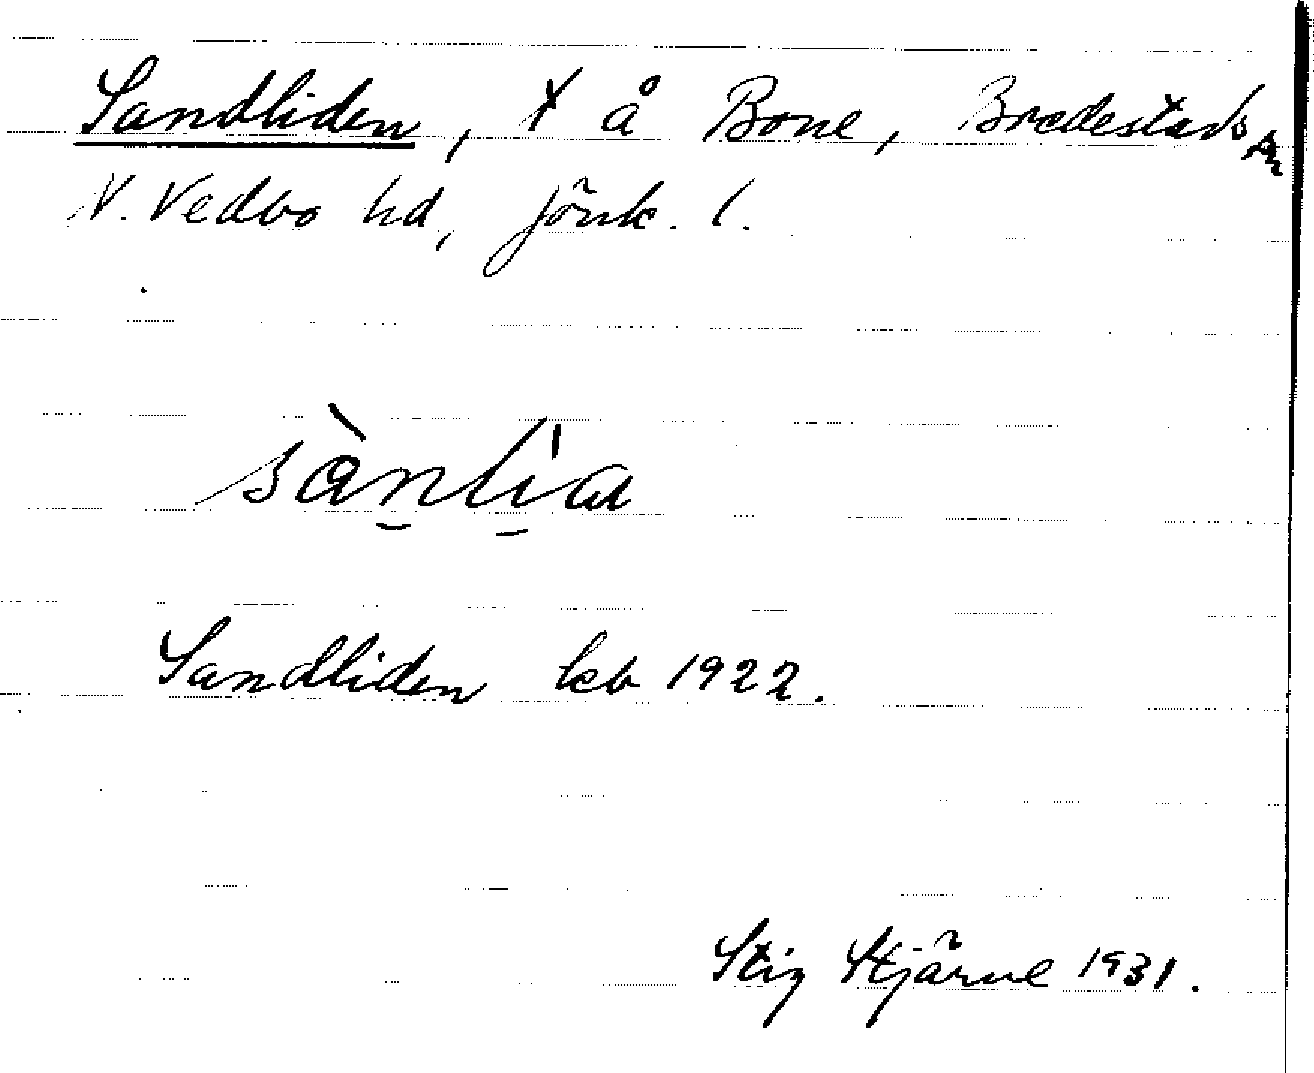 Sandliden, x å Bone, Bredestads sn
N. Vedbo hd, Jönk. l.
sànlia
Sandliden kb 1922.
Stig Stjärne 1931.